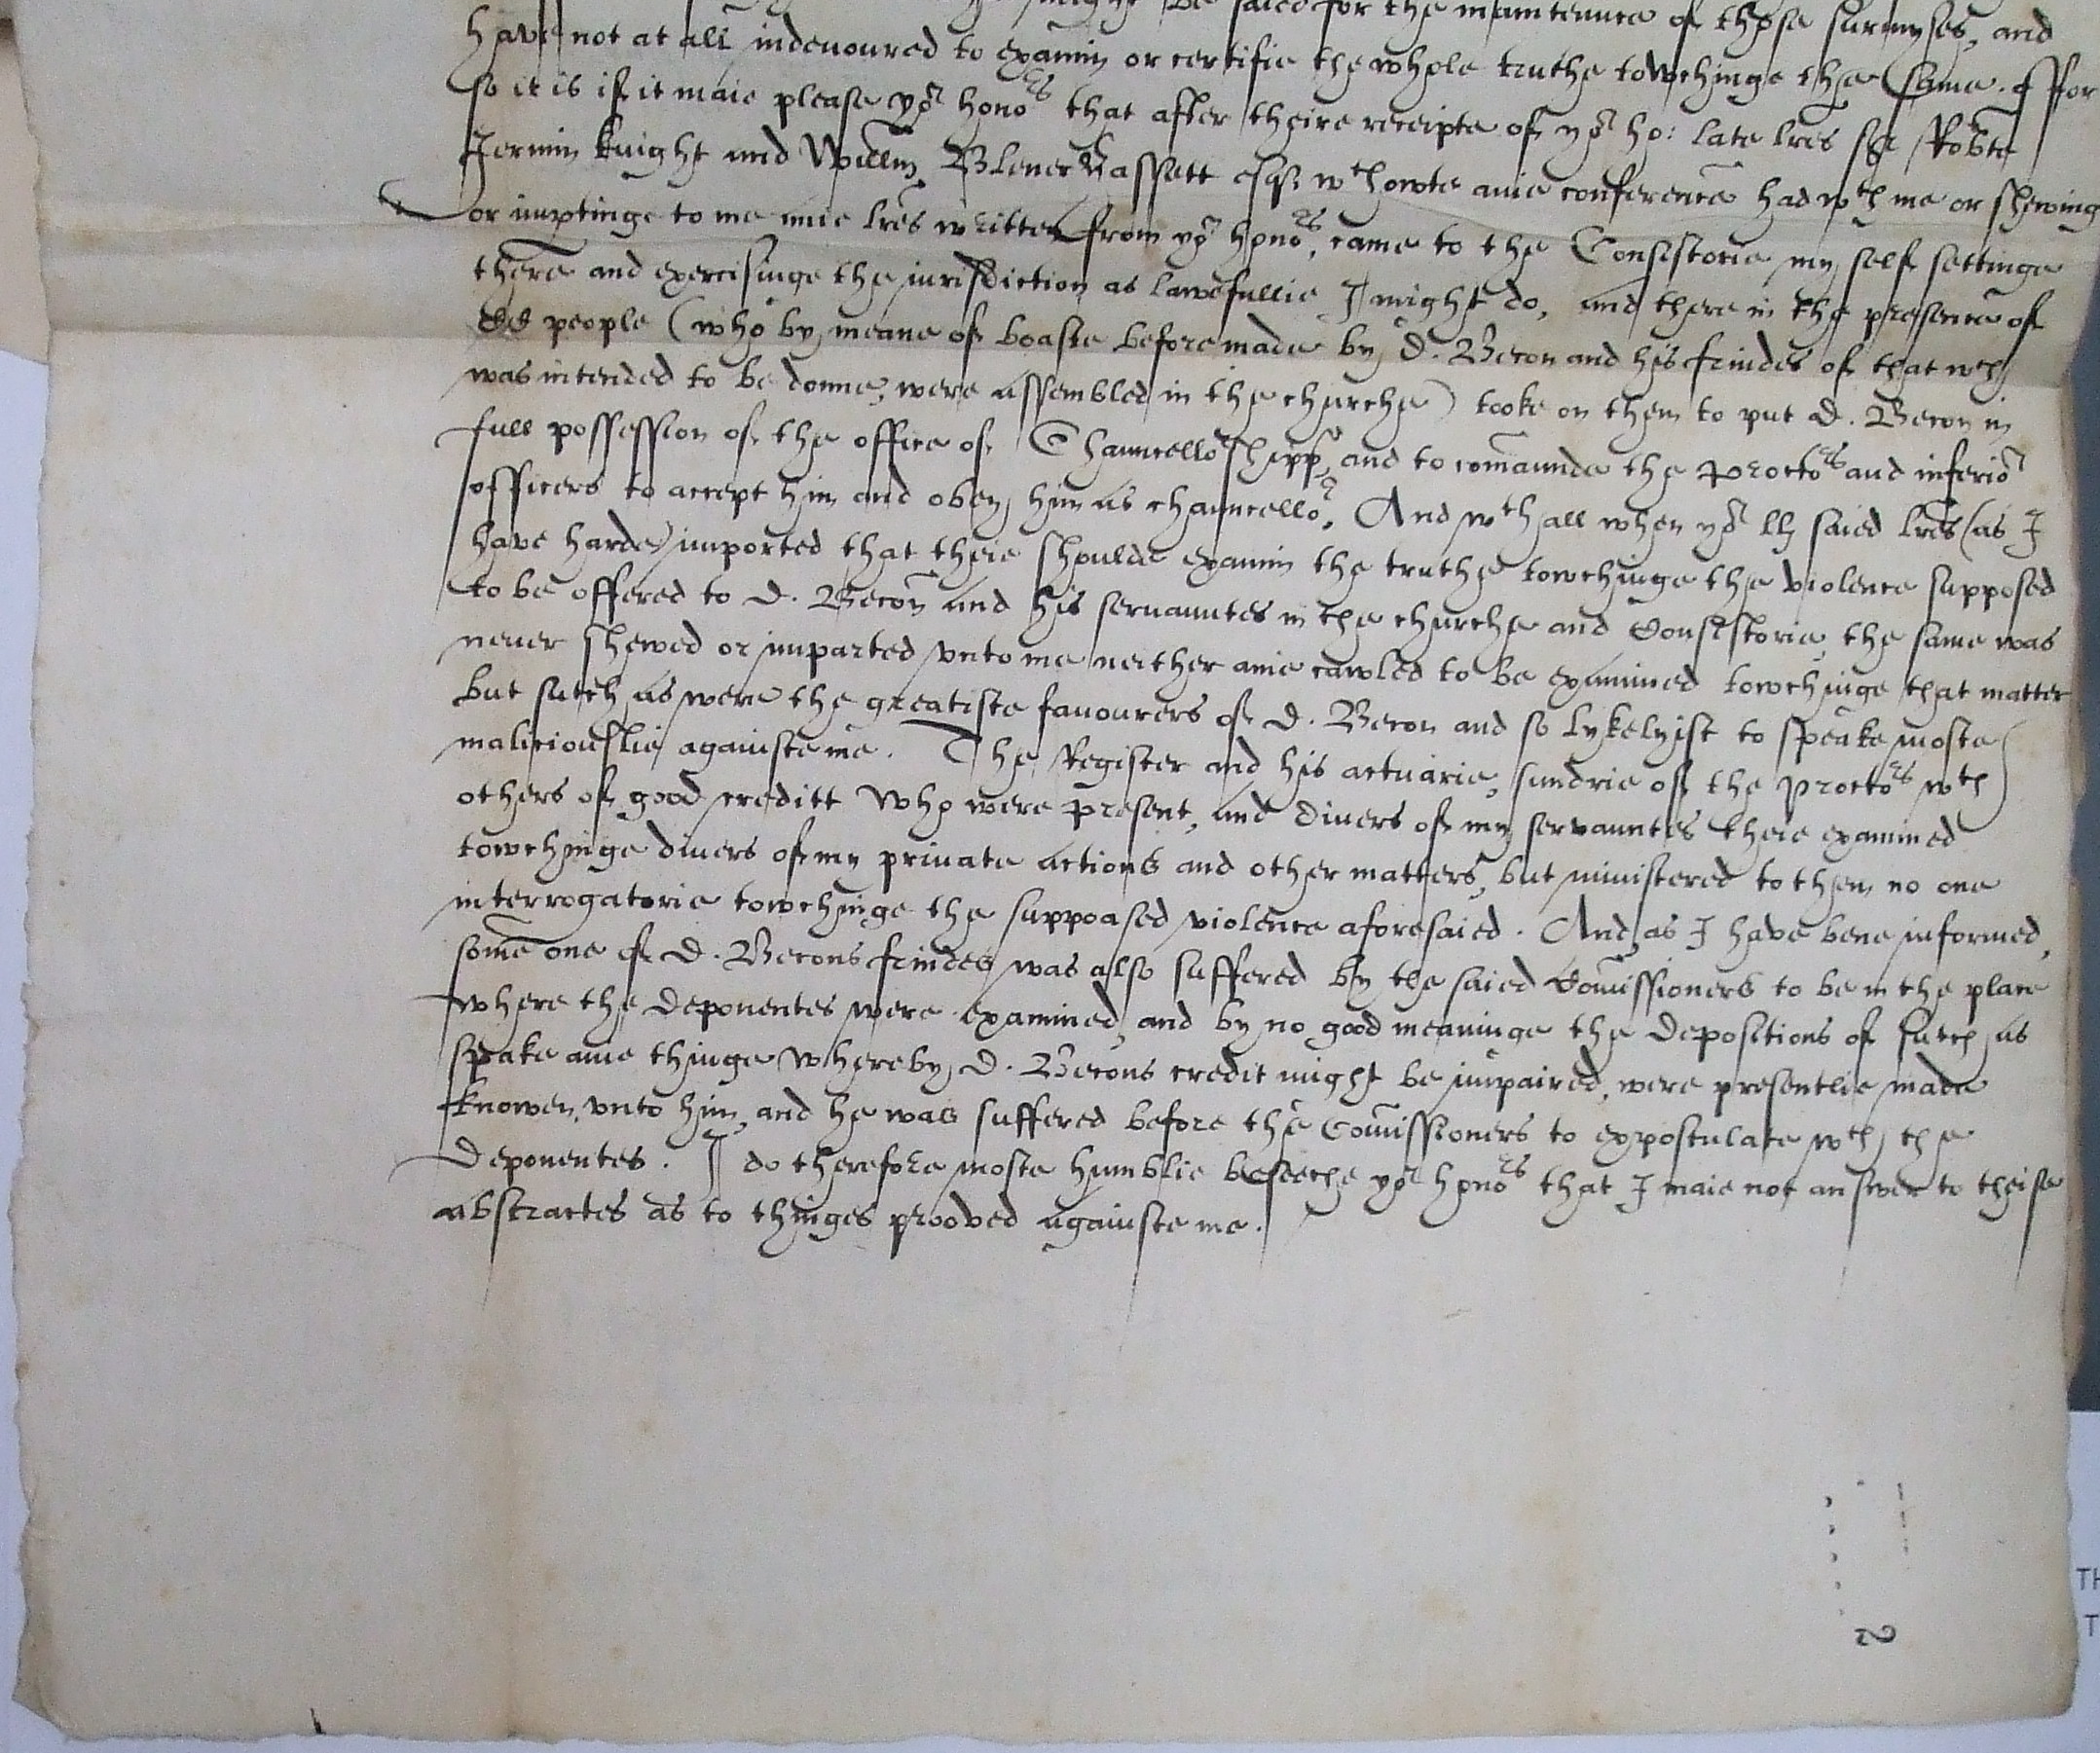 be saied for the maintenance of those surmyses, and
have not at all indevoured to examin or certifie the whole truthe towchinge the same. ffor
so it is if it maie please yor honors that after theire receipte of yor ho: late lres Sr Robte
Jermin knight and Willm Blenerhassett esqr wthowte anie conference had wth me or shewing
or imptinge to me anie lres written from yor honors, came to the Consistorie my self settinge
there and exercisinge the iurisdiction as lawefullie I might do, and there in the presence of
people (who by meane of boaste before made by D. Becon and his frindes of that wch
was intended to be donne, were assembled in the churche) tooke on them to put D. Becon in
full possession of the office of Chauncellorshipp, and to comaunde the Proctors and inferior
officers to accept him and obey him as chauncellor. And wthall when yor llp saied lres (as I
have harde) imported that theie shoulde examin the truthe towchinge the violence supposed
to be offered to D. Becon and his servauntes in the churche and Consistorie, the same was
never shewed or imparted vnto me neither anie cawled to be examined towchinge that matter
but sutch as were the greatiste favourers of D. Becon and so lykelyist to speake moste
maliciouslie againste me. The Register and his actuarie, sundrie of the Proctors wth
others of good creditt who were present, and divers of my servauntes theie examined
towchinge divers of my private actions and other matters, but ministered to them no one
interrogatorie towchinge the suppoased violence aforesaied. And as I have bene informed,
some one of D. Becons frindes was also suffered by the saied Comissioners to be in the place
where the deponentes were examined, and by no good meaninge the depositions of sutch as
spake anie thinge whereby D. Becons credit might be impaired, were presentlie made
knowen vnto him, and he was suffered before the Comissioners to expostulate wth the
deponentes. I do therefore moste humblie beseche yor honors that I maie not answer to theise
abstractes as to thinges prooved againste me.